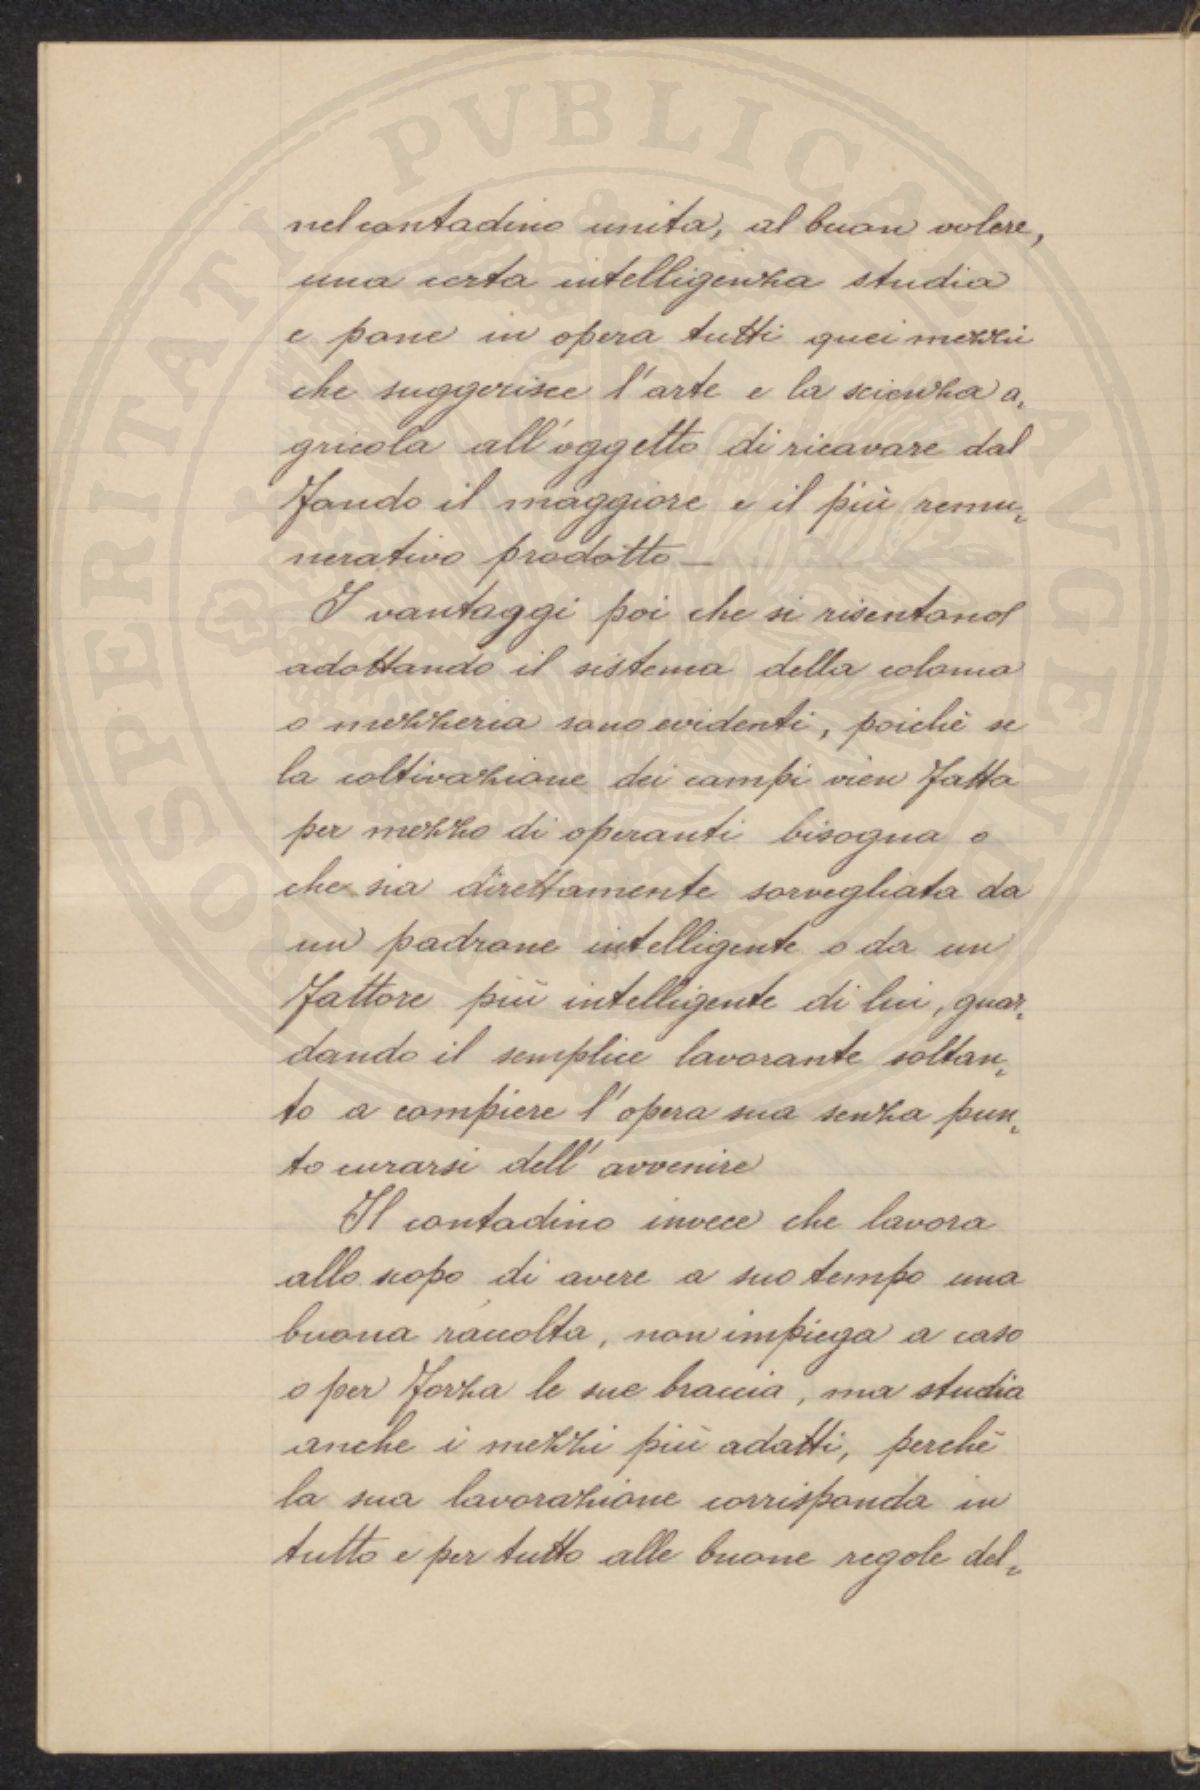 nel contadino unita, al buon volere,
una certa intelligenza studia
e pone in opera tutti quei mezzi
che suggerisce l'arte e la scienza a„
gricola all'oggetto di ricavare dal
fondo il maggiore e il più remu„
nerativo prodotto —
I vantaggi poi che si risentono
adottando il sistema della colonia
o mezzeria sono evidenti, poichè se
la coltivazione dei campi vien fatta
per mezzo di operanti bisogna o
che sia direttamente sorvegliata da
un padrone intelligente o da un
fattore più intelligente di lui, guar„
dando il semplice lavorante soltan„
to a compiere l'opera sua senza pun„
to curarsi dell'avvenire
Il contadino invece che lavora
allo scopo di avere a suo tempo una
buona raccolta, non impiega a caso
o per forza le sue braccia, ma studia
anche i mezzi più adatti, perchè
la sua lavorazione corrisponda in
tutto e per tutto alle buone regole del„